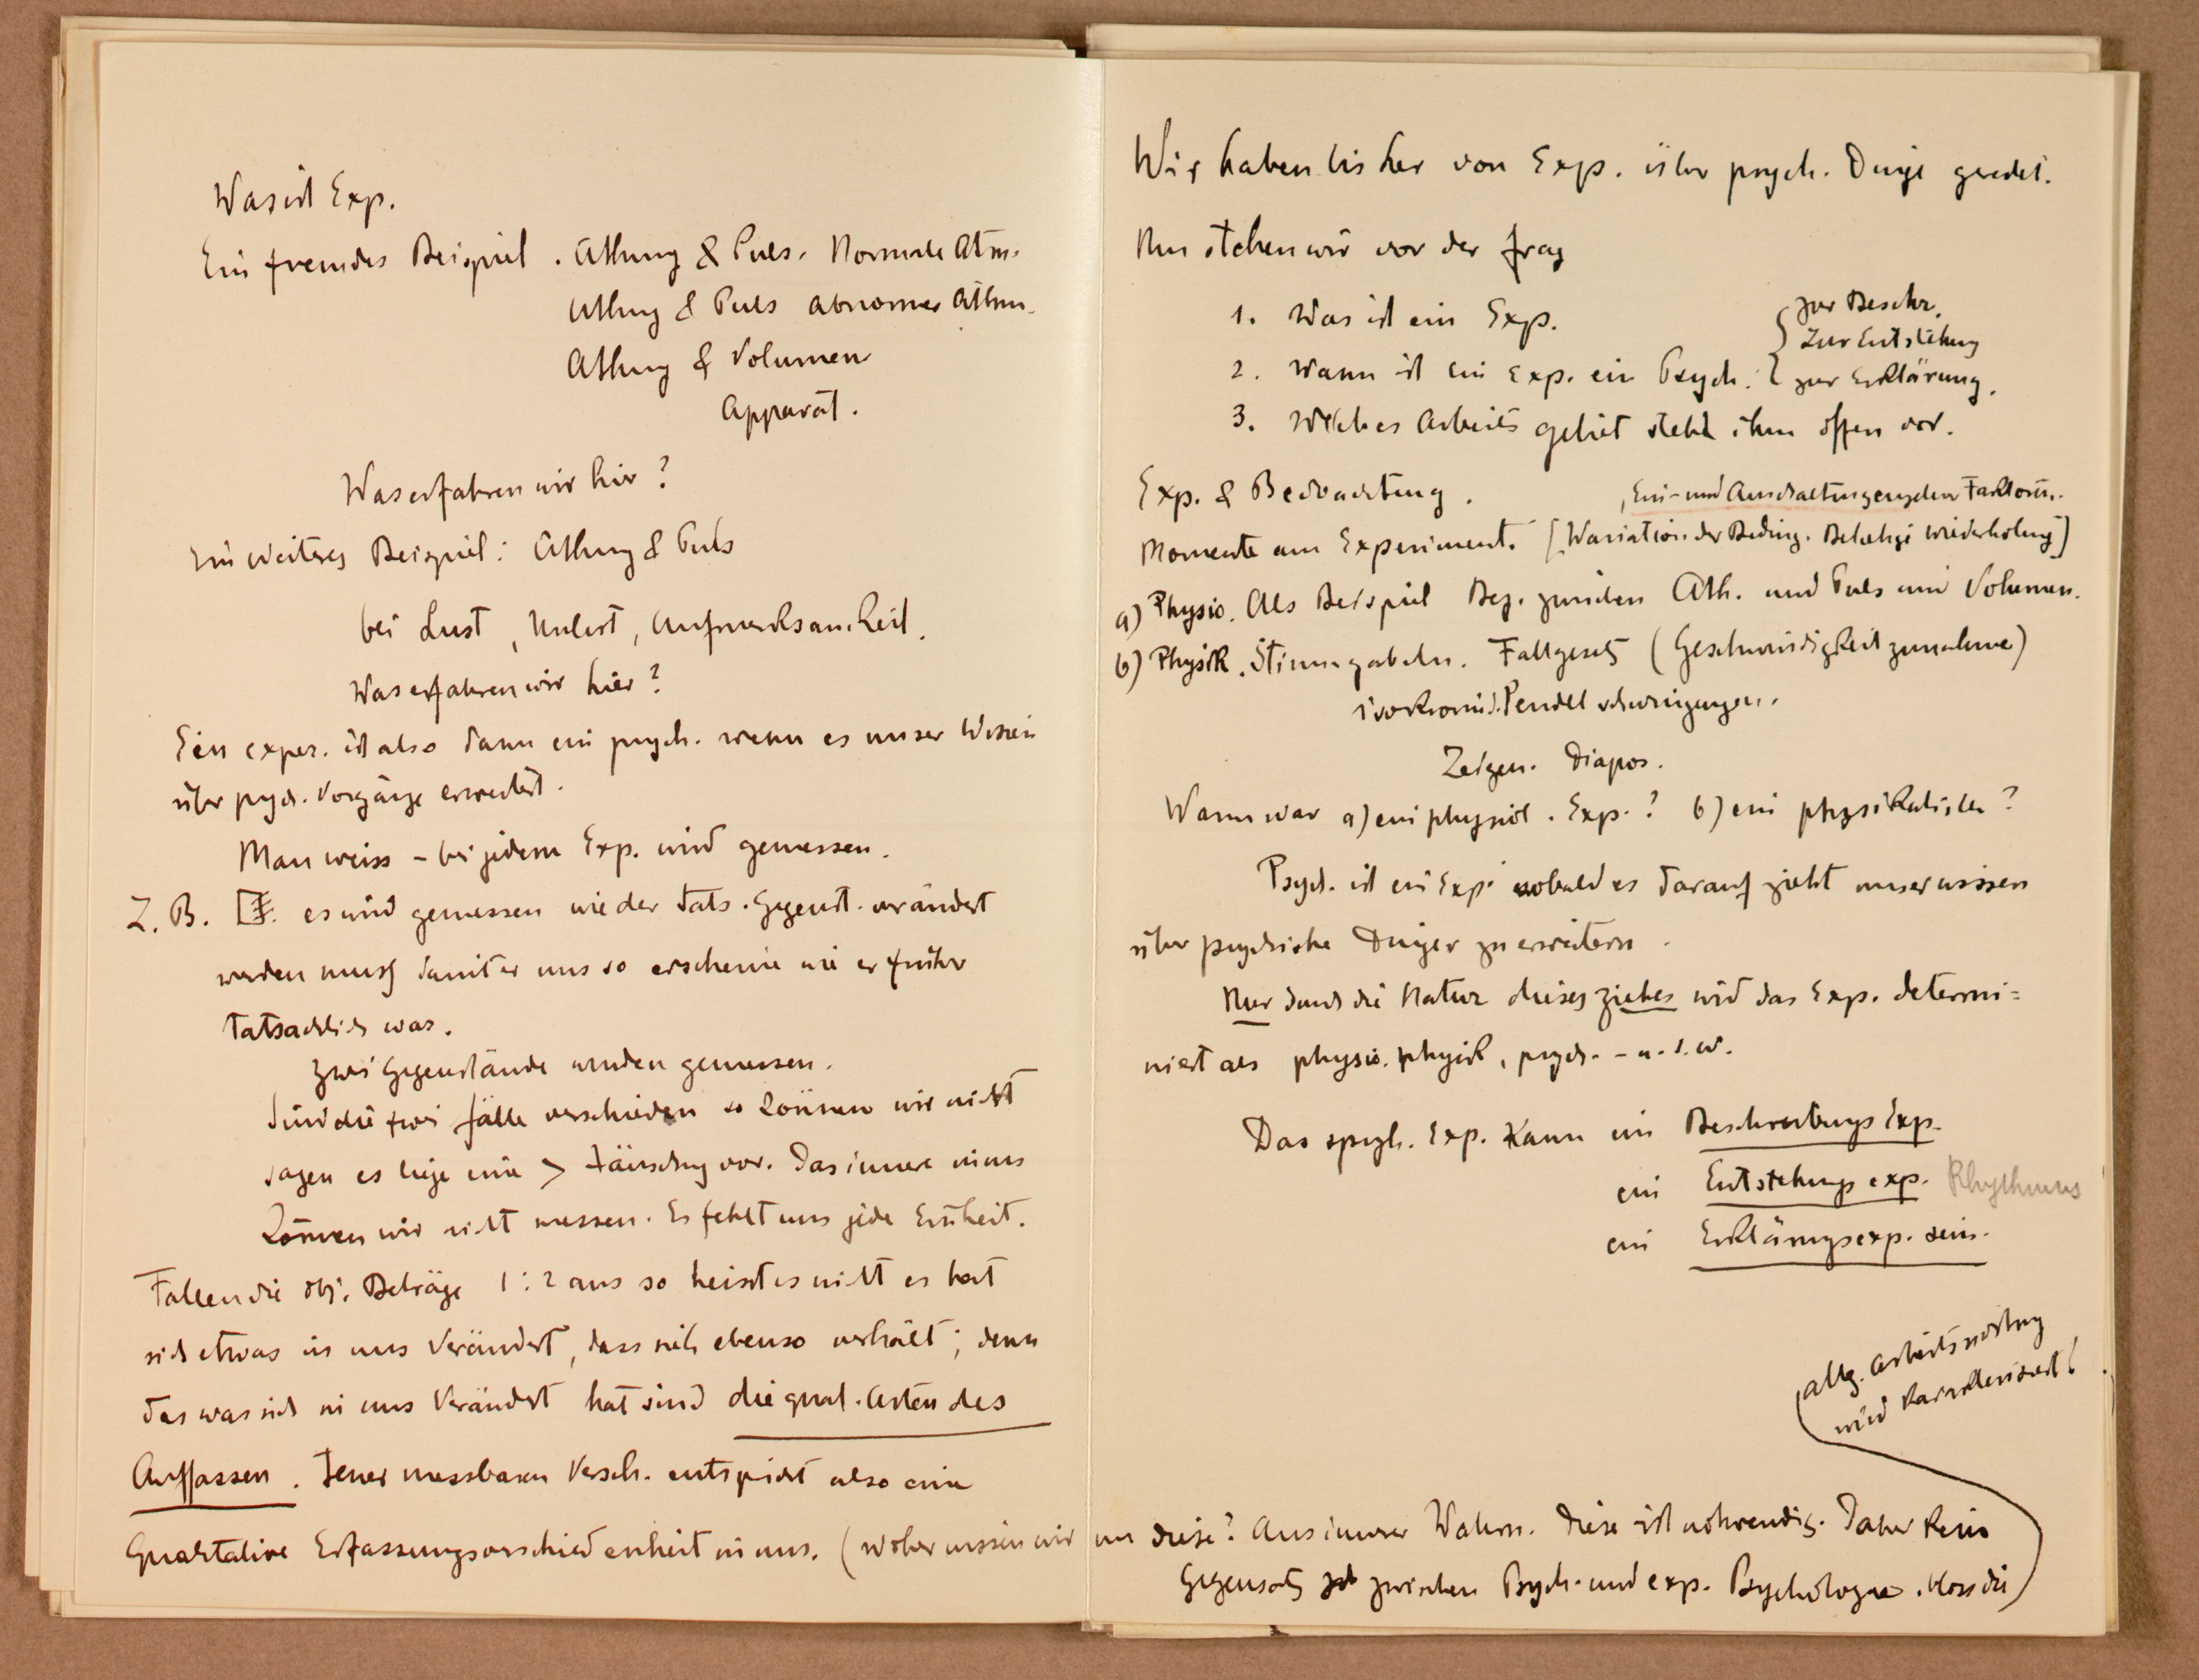 Was ist Exp.
Ein fremdes Beispiel. Athung & Puls. Normale Atm.
Athung & Puls abnorme Athm.
Athung & Volumen
Apparat.
Was erfahren wir hir?
Ein weiteres Beispiel: Athung & Puls
bei Lust, Unlust, Aufmerksamkeit.
Was erfahren wir hier?
Ein exper. ist also dann ein psych. wenn es unser Wissen
über psych. Vorgänge erweitert.
Man weiss – bei jedem Exp. wird gemessen.
Z. B. es wird gemessen wie der tats. Gegenst. verändert
werden muss damit er uns so erscheine wie er früher
tatsächlich was.
Zwei Gegenstände wurden gemessen.
Sind die zwei Fälle verschieden so können wir nicht
sagen es liege eine > Täuschung vor. Das innere in uns
können wir nicht messen. Es fehlt uns jede Einheit.
Fallen die obj. Beträge 1:2 aus so heisst es nicht es hat
sich etwas in uns Verändert, dass sich ebenso verhält; denn
das was sich in uns Verändert hat sind die qual. Arten des
Auffassen. Jener messbaren Versch. entspricht also eine
Qualitative Erfassungsverschiedenheit in uns. (Woher wissen wir
Wir haben bis her von Exp. über psych. Dinge geredet.
Nun stehen wir vor der Frag
1. Was ist ein Exp.
2. Wann ist ein Exp. ein Psych. { zur Beschr.
Zur Entstehung
zur Erklärung.
3. Welches Arbeitsgebiet steht ihm offen vor.
Exp. & Beobachtung. Ein- und Ausschaltung einzelner Faktoren.
Momente am Experiment. [Wariation der Beding. Beliebige Wiederholung]
a) Physio. Als Beispiel Bez. zwischen Ath. und Puls und Volumen.
b) Physik. Stimmgabeln. Fallgesetz (Geschwindigkeitzunahme)
Pendelschwingungen.
Zeigen. Diapos.
Wann war a) ein physiol. Exp.? b) ein physikalisches?
Psych. ist ein Exp. sobald es darauf zieht unser wissen
über psychische Dinge zu erweitern.
Nur durch die Natur dieses Zieles wird das Exp. determi=
niert als physio. physik, psych. – u. s. w.
Das spych. Exp. kann ein Beschreibungs Exp.
ein Entstehungs exp. Rhythmus
ein Erklärungsexp. sein.
allg. Arbeitsrichtung
wird karakterisiert!
um diese? Aus innerer Wahrn. Diese ist nothwendig. Daher kein
Gegensatz zwischen Psych. und exp. Psychologie. bloss die)